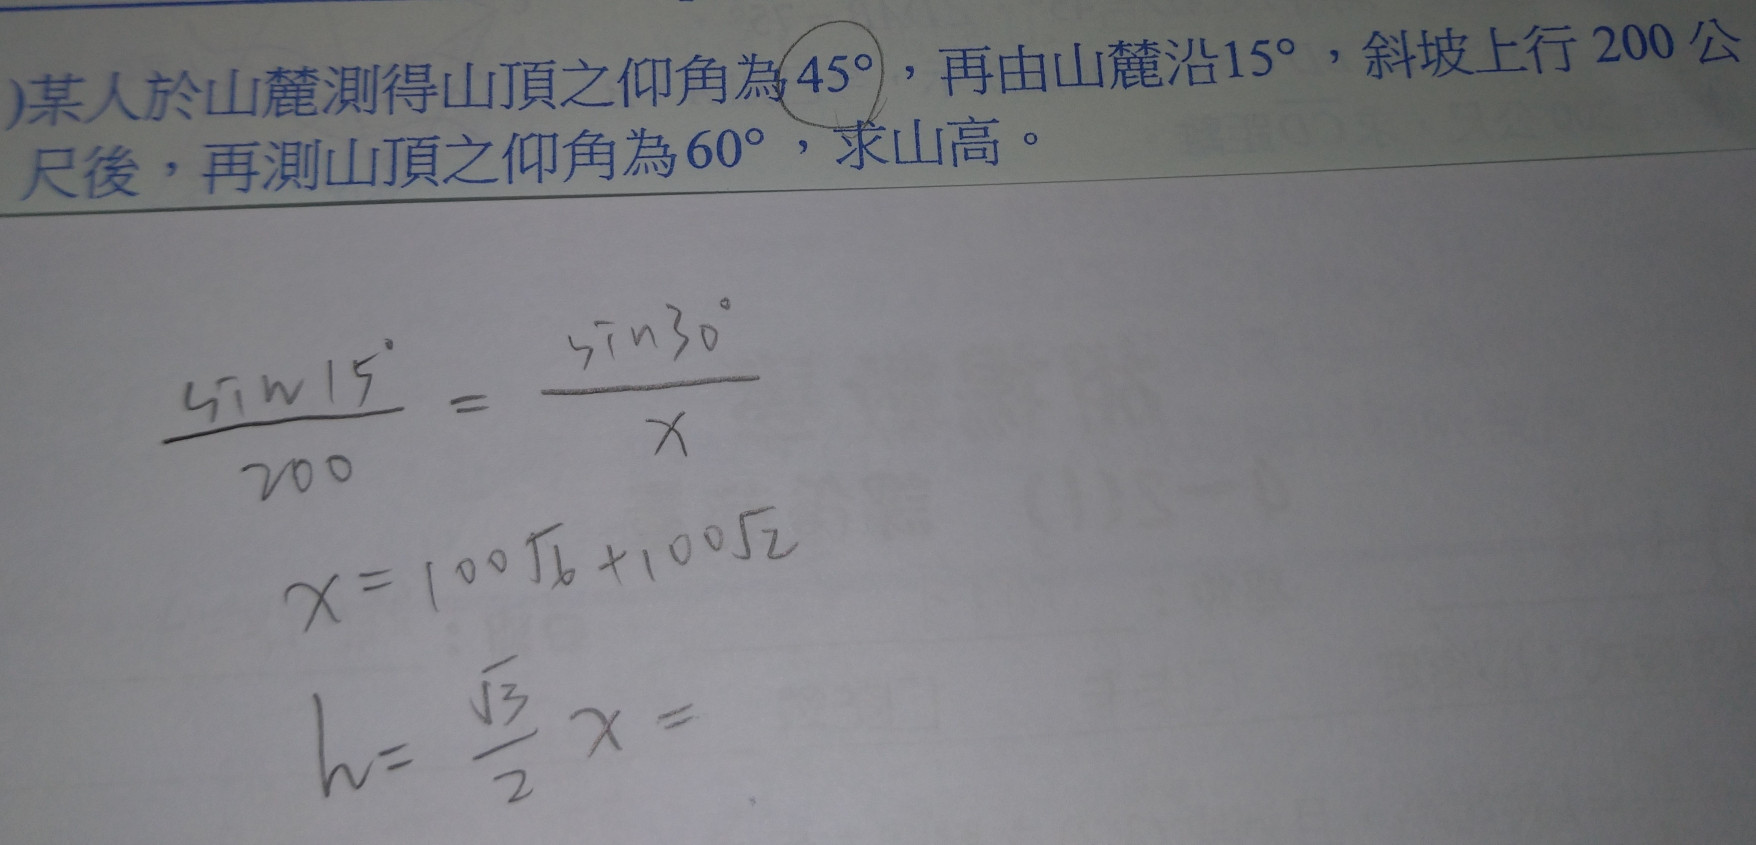 )某人於山麓測得山頂之仰角為45°，再由山麓沿15°，斜坡上行 200 公
尺後，再測山頂之仰角為60°，求山高。
sin15°/200 = sin30°/x
x=100√6+100√2
h= √3/2 x =